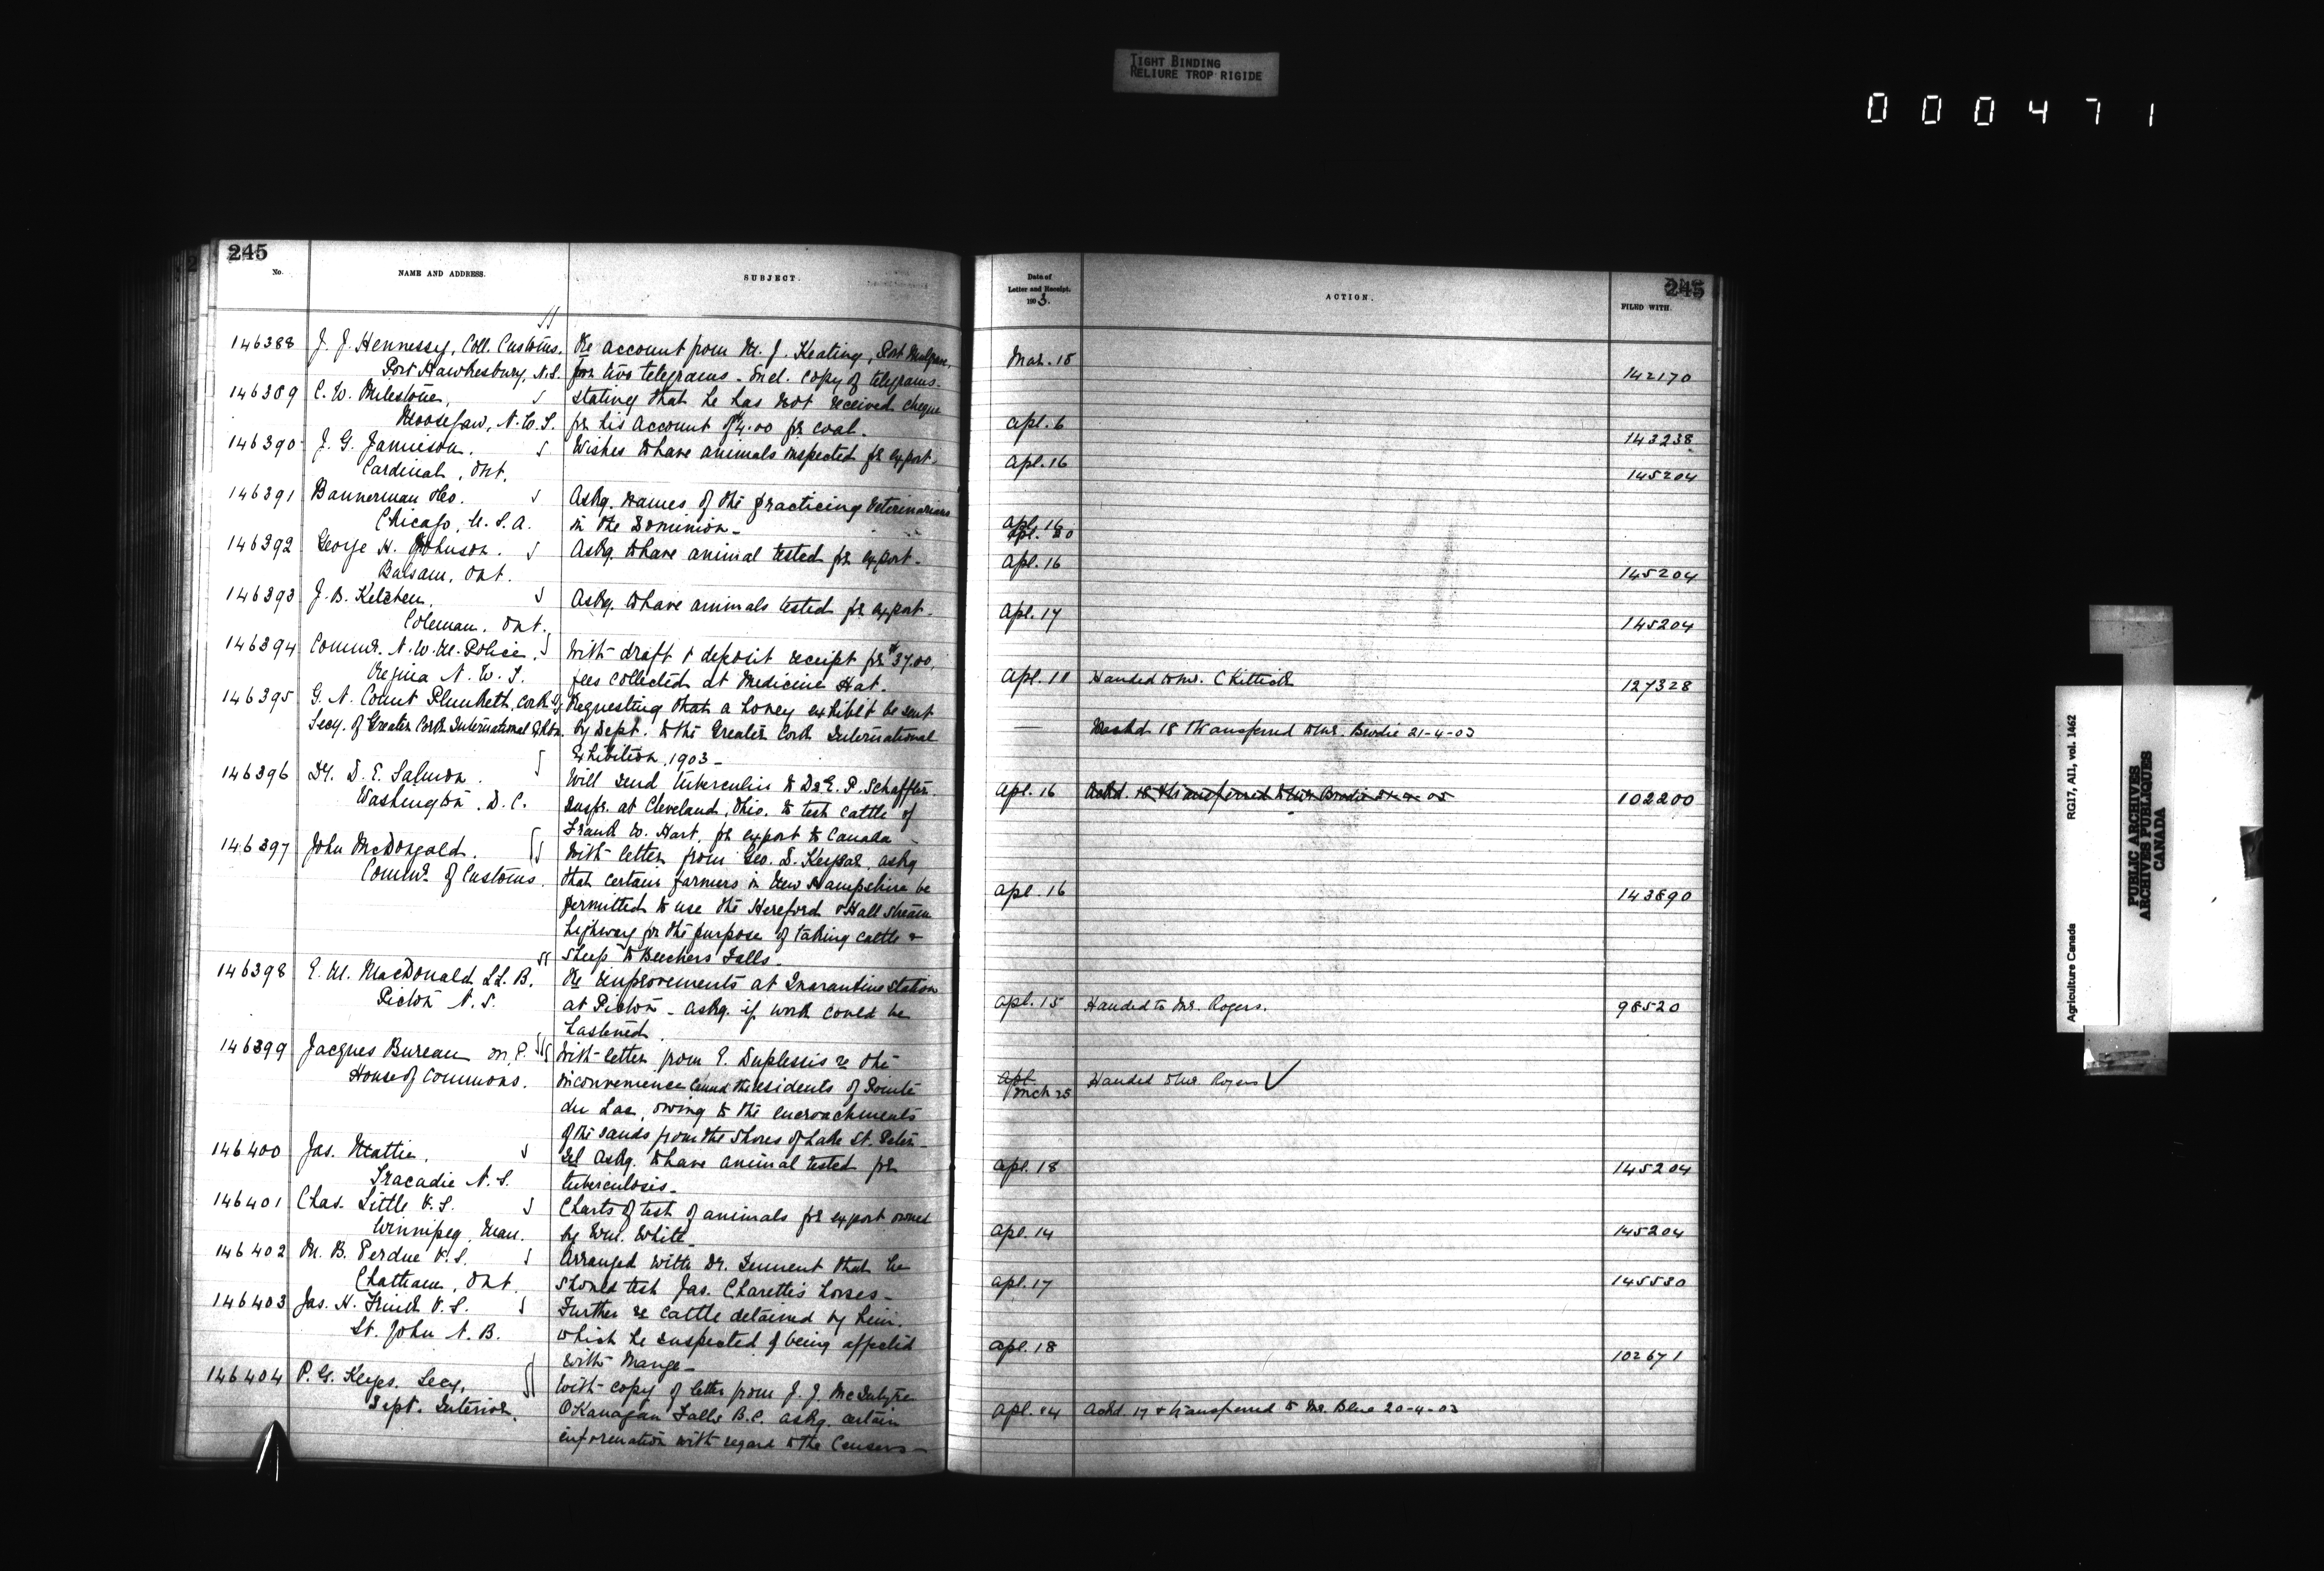 TIGHT BINDING
RELIURE TROP RIGIDE
000471
245
No.
NAME AND ADDRESS.
SUBJECT.
146388 J. J. Hennessy, Coll. Customs. Re account from M. J. Keating, Port Mulgrave,
Port Hawkesbury, N.S. for two telegrams - Encl. copy of telegrams.
146389 C. W. Milestone, Stating that he has not received cheque
Moosejaw, N.W.T. for his account $4.00 for coal.
146390 J. G. Jamieson. Wishes to have animals inspected for export.
Cardinal, Ont.
146391 Bannerman Askg. names of the practicing Veterinarians
Chicago, U.S.A. in the Dominion -
146392 George H. Johnson. Askg. to have animal tested for export.
Balsam, Ont.
146393 J. B. Ketchen, Askg. to have animals tested for export.
Coleman, Ont.
146394 Commr. N.W.M. Police. With draft & deposit receipt for $37.00,
Regina N.W.T. fees collected at Medicine Hat.
146395 G. N. Count Plunketh, Cork Requesting that a honey exhibit be sent
Secy. of Greater Cork International by Dept. to the Greater Cork International
Exhibition, 1903 -
146396 Dr. D. E. Salmon. Will send tuberculin to Dr. E. P. Schaffter
Washington, D.C. Inspr. at Cleveland, Ohio, to test cattle of
Frank W. Hart, for export to Canada -
146397 John McDougald. With letter from Geo. D. Keysar, askg
Commr. of Customs. that certain farmers in New Hampshire be
permitted to use the Hereford & Hall Stream
highway for the purpose of taking cattle &
sheep to Beechers Falls.
146398 E. M. MacDonald LL.B. Re improvements at Quarantine Station
Pictou N.S. at Pictou - askg. if work could be
hastened.
146399 Jacques Bureau M.P. With letter from E. Duplessis re the
House of Commons. inconvenience caused the residents of Pointe
du Lac, owing to the encroachments
of the sands from the shores of Lake St. Peter -
146400 Jas. Mattie. Tel askg. to have animal tested for
Tracadie N.S. tuberculosis -
146401 Chas. Little V.S. Charts of test of animals for export owned
Winnipeg, Man. by Wm. White
146402 M. B. Perdue V.S. Arranged with Dr. Tennent that he
Chatham, Ont. should test Jas. Charette's horses -
146403 Jas. H. Frink V.S. Further re cattle detained by him.
St. John N.B. which he suspected of being affected
with Mange -
146404 P. G. Keyes. Secy. With copy of letter from J. J. McIntyre
Dept. Interior. OKanagan Falls B.C. askg. certain
information with regard to the Census -
Date of
Letter and Receipt.
1903.
ACTION.
245
FILED WITH.
Mar. 18 142170
Apl. 6 143238
Apl. 16 145204
Apl. 16
Apl. 20
Apl. 16 145204
Apl. 17 145204
Apl. 11 Handed to Mr. 127328
18 Transferred to Mr. Brodie 21-4-03
Apl. 16 Ackd. 18 & transferred to Mr. Brodie 102200
Apl. 16 143890
Apl. 15 Handed to Mr. Rogers. 98520
Apl.
Mch 25 Handed to Mr. Rogers ✓
Apl. 18 145204
Apl. 14 145204
Apl. 17 145530
Apl. 18 102671
Apl. 14 Ackd. 17 & transferred to Mr. Blue 20-4-03
Agriculture Canada RG17, AII, vol. 1462
PUBLIC ARCHIVES
ARCHIVES PUBLIQUES
CANADA